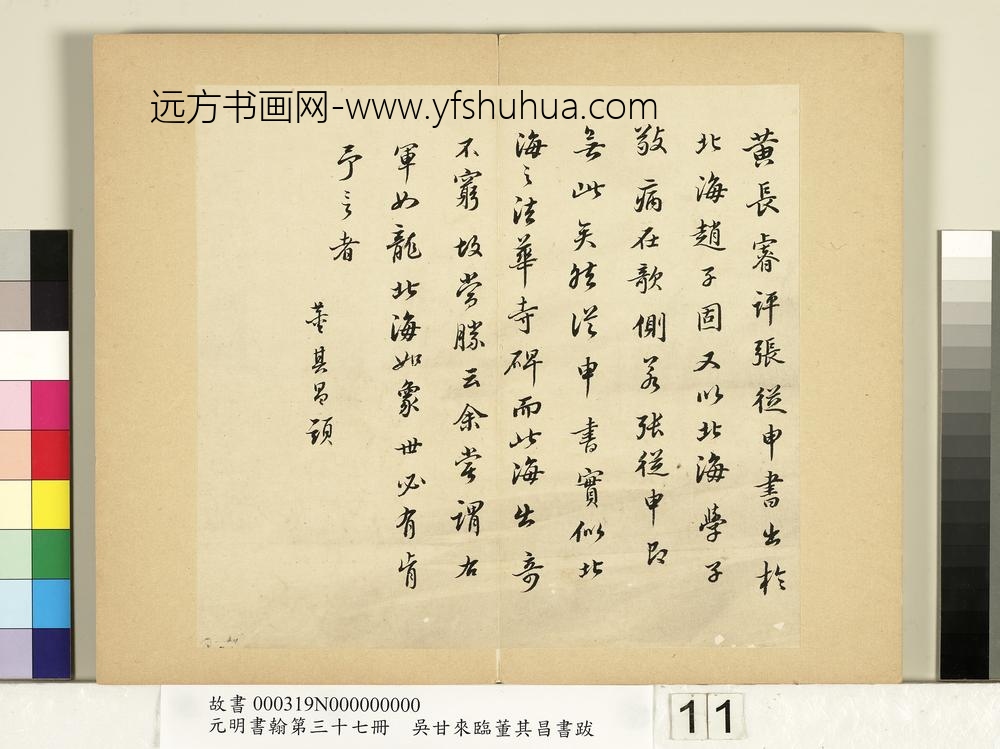 远方书画网-www.yfshuhua.com
黃長睿評張從申書出於
北海趙子固又以北海學子
敬病在欹側若張從申即
無此矣然從申書實似北
海之法華寺碑而北海出奇
不窮故當勝云余嘗謂右
軍如龍北海如象世必有肯
予言者
董其昌題
故書 000319N000000000
元明書翰第三十七冊 吳甘來臨董其昌書跋
11